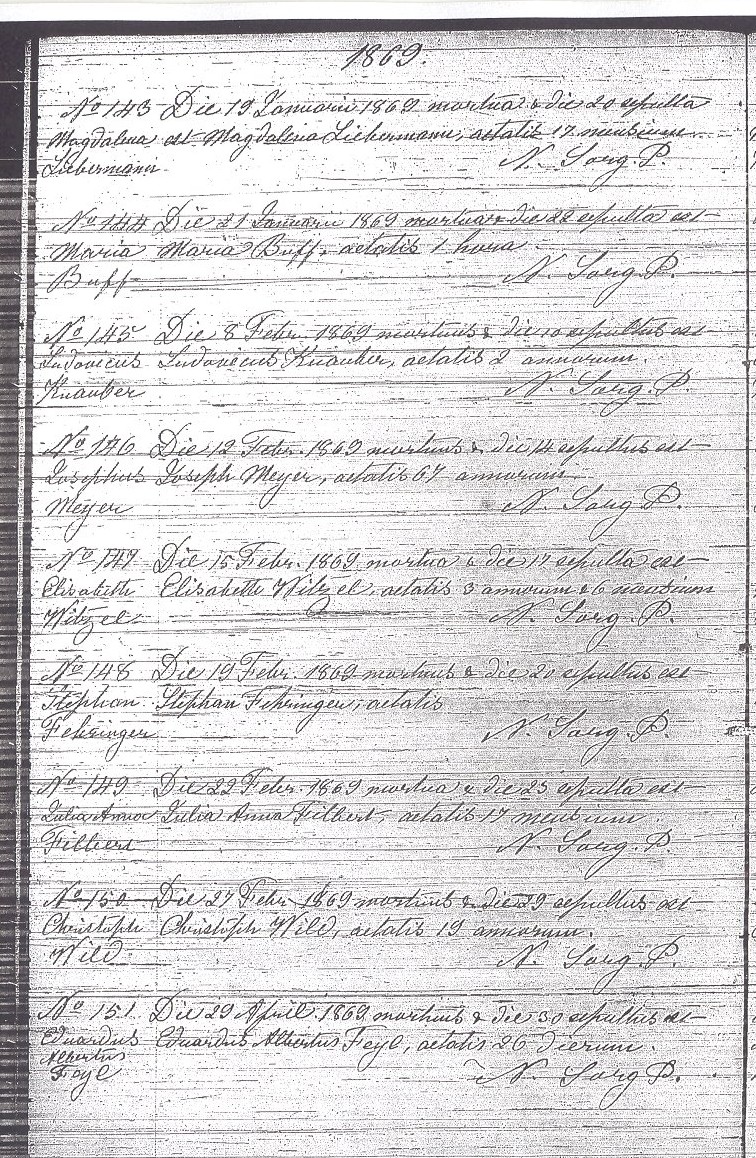 1869.
No 143 Die 19 Januarii 1869 mortua & die 20 sepulta
Magdalena est Magdalena Liebermann, aetatis 17 mensium
Liebermann N. Sorg. P.
No 144 Die 21 Januarii 1869 mortua & die 22 sepulta est
Maria Maria Buff, aetatis 1 hora
Buff N. Sorg P.
No 145 Die 8 Febr. 1869 mortuus & die 10 sepultus est
Ludovicus Ludovicus Knauber, aetatis 2 annorum.
Knauber N. Sorg. P.
No 146 Die 12 Febr. 1869 mortuus & die 14 sepultus est
Josephus Joseph Meyer, aetatis 67 annorum
Meyer N. Sorg P.
No 147 Die 15 Febr. 1869 mortua & die 17 sepulta est
Elisabeth Elisabeth Witzel, aetatis 3 annorum & 6 mensium
Witzel N. Sorg P.
No 148 Die 19 Febr. 1869 mortuus & die 20 sepultus est
Stephan Stephan Fehringer, aetatis
Fehringer N. Sorg P.
No 149 Die 22 Febr. 1869 mortua & die 25 sepulta est
Julia Anna Julia Anna Filbert, aetatis 17 mensium
Filbert N. Sorg P.
No 150 Die 27 Febr. 1869 mortuus & die 29 sepultus est
Christoph Christoph Wild, aetatis 19 annorum.
Wild N. Sorg. P.
No 151. Die 29 April. 1869 mortuus & die 30 sepultus est
Eduardus Eduardus Albertus Feyl, aetatis 26 dierum.
Albertus
Feyl N. Sorg P.